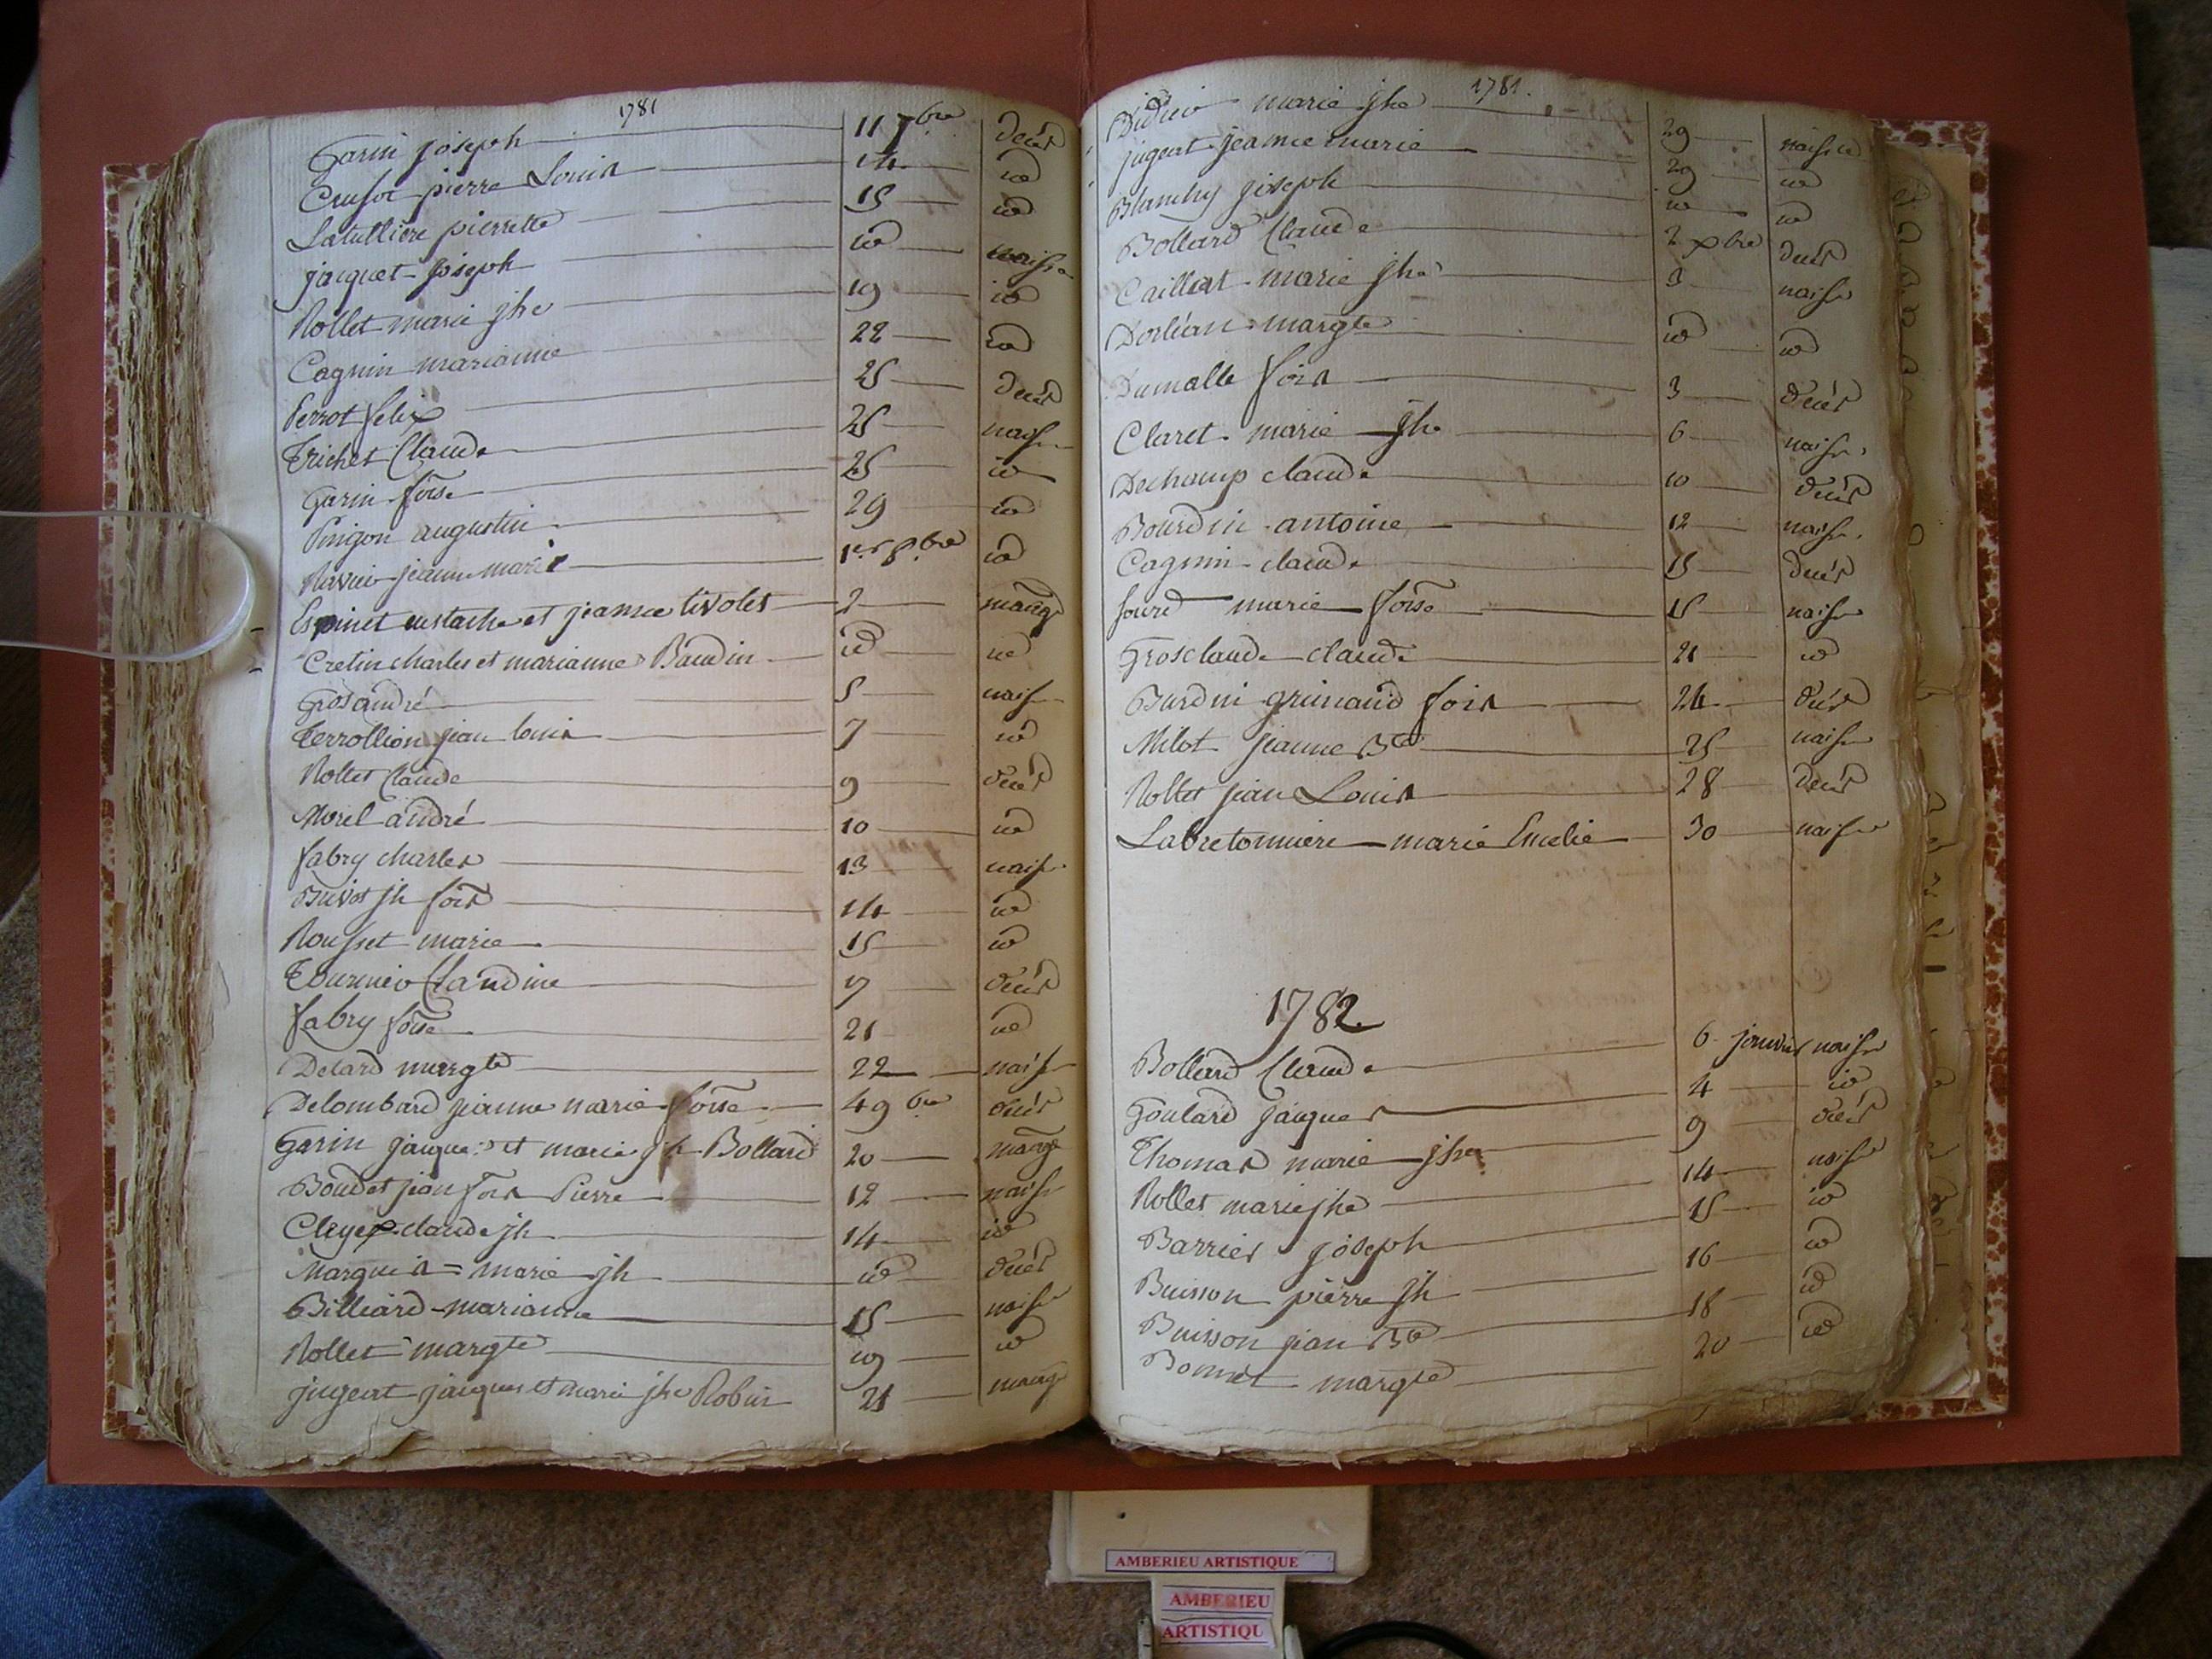 1781
Garin joseph 11 7bre decès
Crusot pierre Louis 14 id
Latullière pierrette 15 id
jacquet joseph id naiss
Rollet marie jhe 19 id
Cagnin marianne 22 id
Perrot felix 25 decès
Trichet Claude 25 naiss
Garin foise 25 id
Pingon augustin 29 id
Ravier jeanne marie 1er 8bre id
Espinet eustache et jeanne tivolet 2 mariage
Cretin charles et marianne Baudin id id
Gros andré 5 naiss
Terrollion jean louis 7 id
Rollet Claude 9 decès
Morel andré 10 id
fabry charles 13 naiss
Buivot jh fois 14 id
Rousset marie 15 id
Tournier Claudine 17 decès
fabry foise 21 id
Delard margte 22 naiss
Delombard jeanne marie foise 4 9bre decès
Garin jacques et marie jh Bollard 20 mariage
Boudet jean fois Pierre 12 naiss
Cleyex claude jh 14 id
Marquis = marie jh id decès
Billiard marianne 15 naiss
Rollet margte 19 id
jugeat jacques et marie jhe Robin 21 mariage
1781.
Didier marie jhe 29 naiss
jugeat jeanne marie 29 id
Blanchy joseph id id
Bollard Claude 2 xbre decès
Caillat marie jhe 3 naiss
Dorléan margte id id
Dumalle fois 3 decès
Claret marie jhe 6 naiss.
Dechamp claude 10 decès
Bourdin antoine 12 naiss.
Cagnin claude 15 decès
Jourd marie foise 15 naiss
Grosclaude claude 21 id
Burdin grimaud fois 24 decès
Milot jeanne Bte 25 naiss
Rollet jean Louis 28 decès
Labretonniere marie Emelie 30 naiss
1782
Bollard Claude 6 janvier naiss
Goulard jacques 4 id
Thomas marie jhe 9 decès
Rollet marie jhe 14 naiss
Barrier joseph 15 id
Buisson pierre jh 16 id
Buisson jean Bte 18 id
Bonnet margte 20 id
AMBERIEU ARTISTIQUE
AMBERIEU
ARTISTIQU